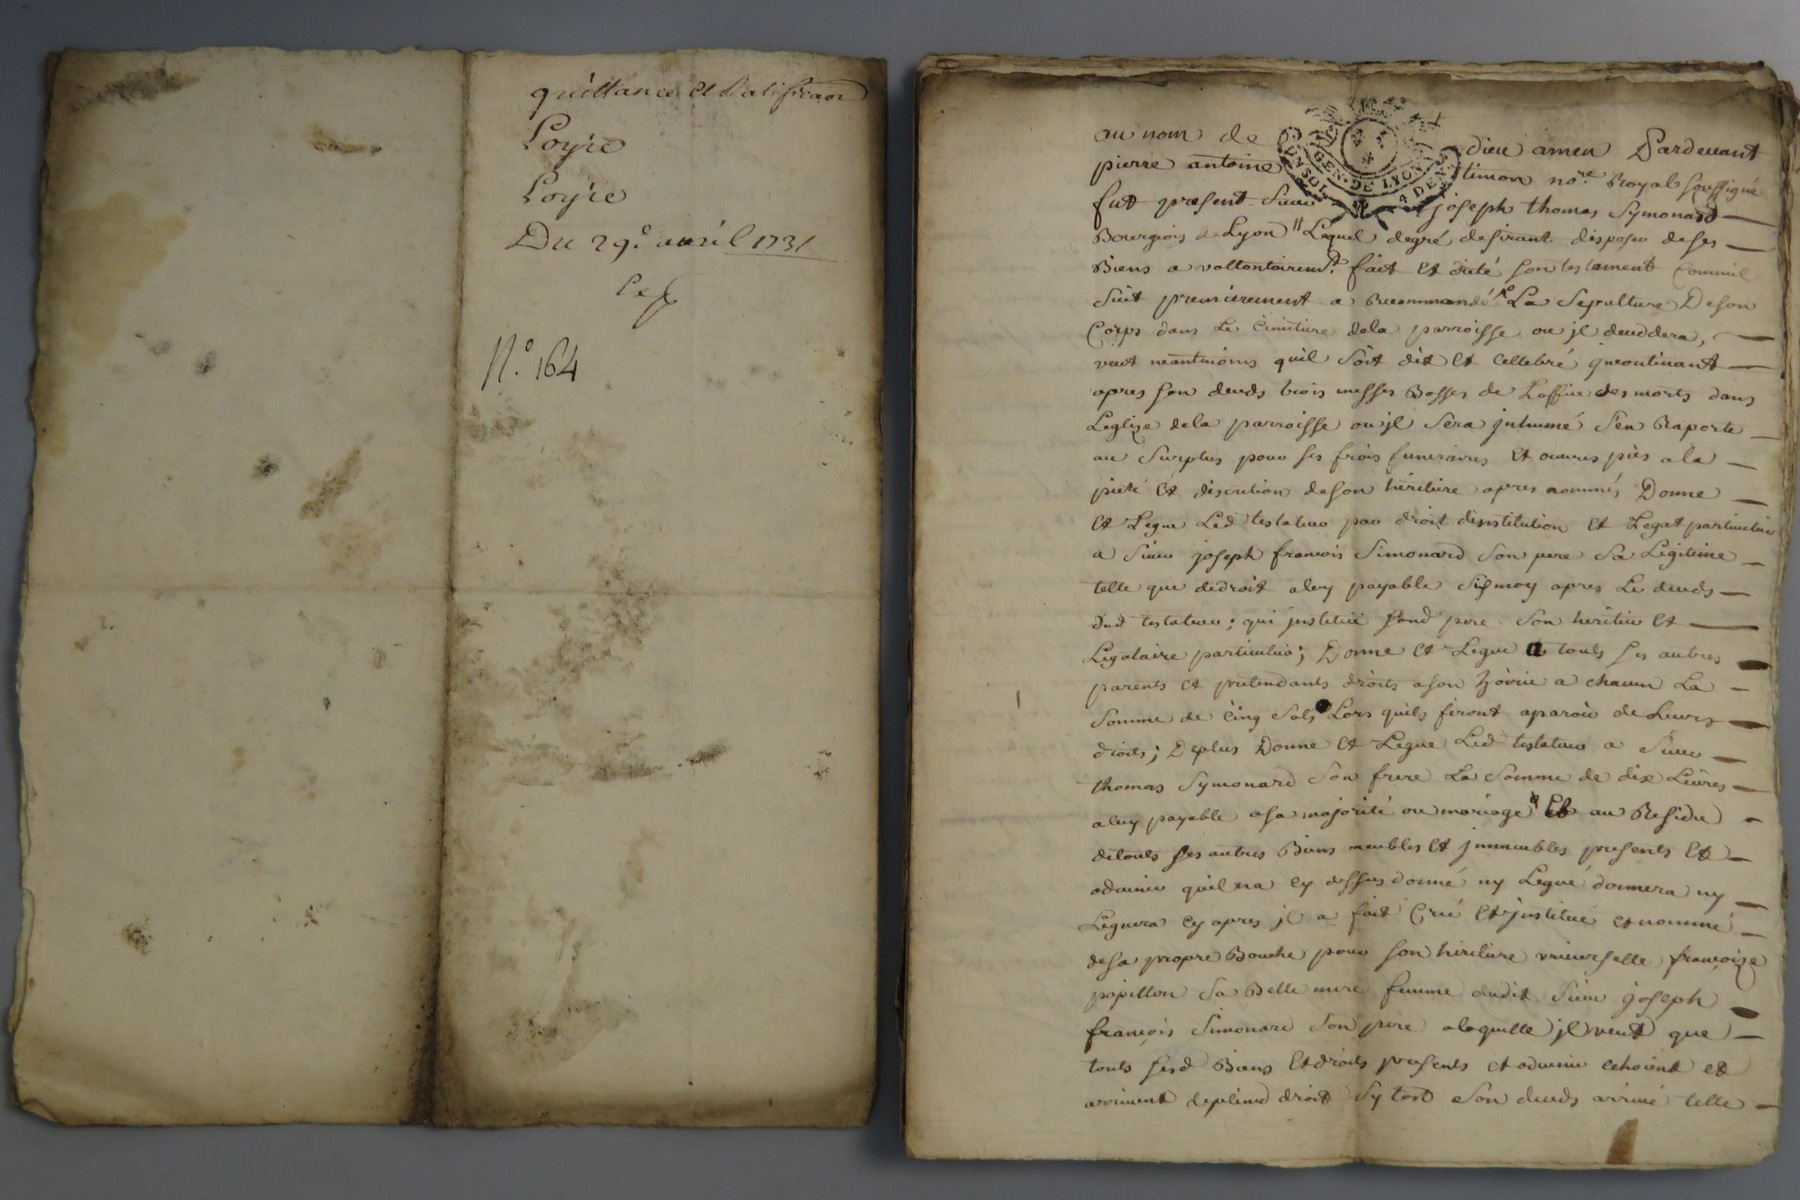 quittance et Ratification
Loyre
Loyre
Du 29e. avril 1731
N.o 164
au nom de dieu amen Pardevant
pierre antoine timon no.re Royal soussigné
fut present Sieur joseph thomas Symonard
Bourgeois de Lyon Lequel degré desirant disposer deses
Biens a vollontairemt. fait et dicté son testament comme il
suit premierement a Recommandé La Sepulture De son
Corps dans Le Cimitiere dela parroisse ou jl deceddera,
veut neantmoins quil soit dit et cellebré jncontinant
apres son deceds trois messes Basses de Loffice des morts dans
Leglize dela parroisse ou jl sera jnhumé s'en Raporte
au surplus pour ses frois funeraires et œuvres pies ala
pieté et discretion deson heritiere apres nommés Donne
et Legue Led testateur par droit dinstitution et Legat particulier
a Sieur joseph francois Simonard son pere sa Legitime
telle que dedroit aluy payable sixmoy apres Le deceds
dud testateur; qui jnstitue sond pere son heritier et
Legataire particulier; Donne et Legue a touts ses autres
parents et pretendants droits ason hoirie a chacun La
somme de cinq sols Lors quils feront aparoir de Leurs
droits; Deplus Donne et Legue Led testateur a Sieur
thomas Symonard son frere La somme de dix Livres
aluy payable asa majorité ou mariage Et au Residu
detouts ses autres Biens meubles et jmmeubles presents et
advenir quil na cy dessus donné ny Legué donnera ny
Leguera cy apres jl a fait Créé et jnstitué et nommé
desa propre Bouche pour son heritiere universelle françoize
papillon sa Belle mere femme dudit Sieur joseph
francois Simonard son pere alaquelle jl veut que
touts sesd Biens et droits presents et advenir echoient et
arrivent deplein droit sy tost son deceds arrivé telle
GEN. DE LYON